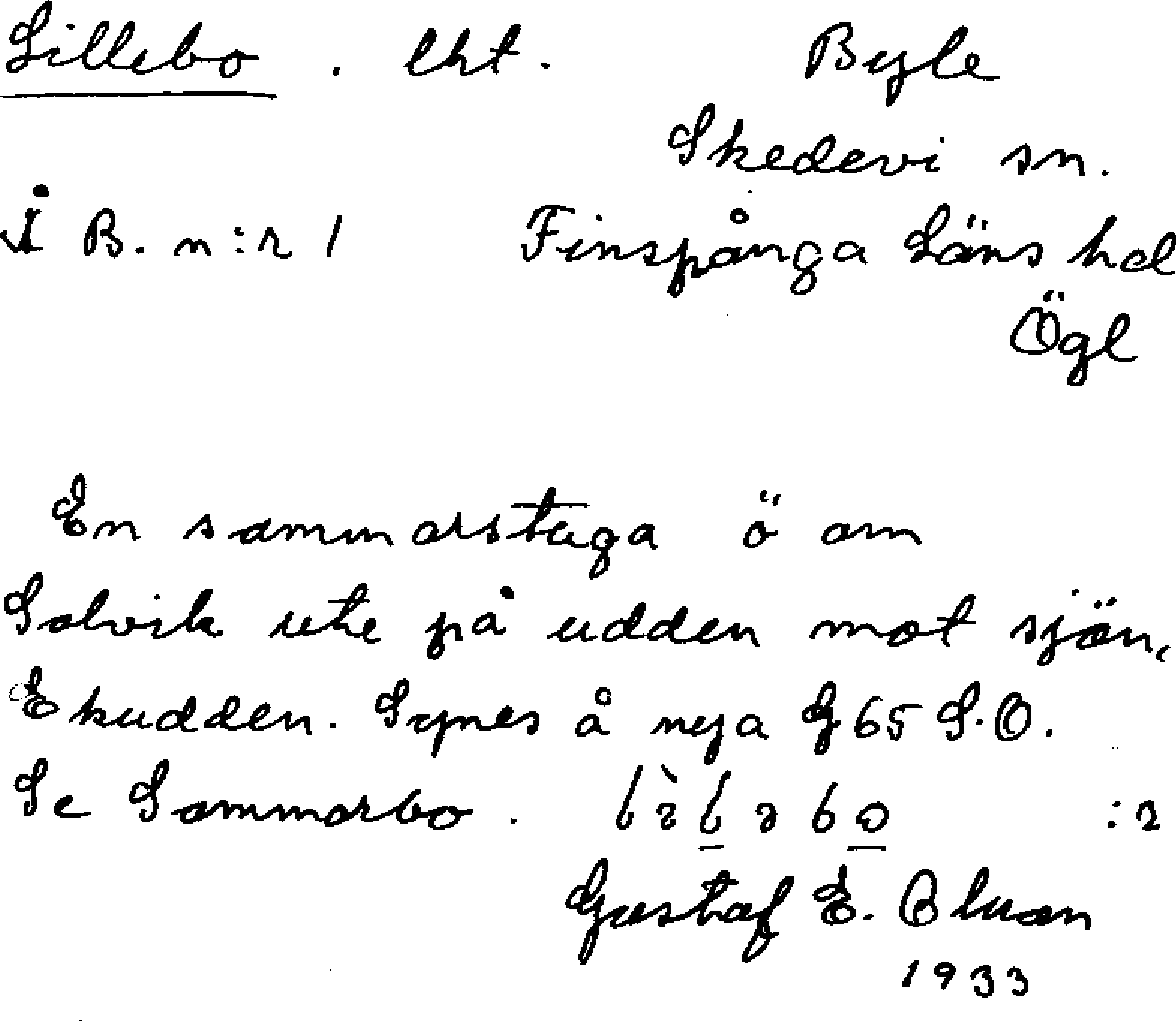 Lillebo. lht. Byle
Skedevi sn.
Å B. n:r 1 Finspånga Läns hd
Ögl
En sommarstuga ö om
Solvik ute på udden mot sjön,
Ekudden. Synes å nya G 65 S.O.
Se Sommarbo. :2
Gustaf E. Bluan
1933